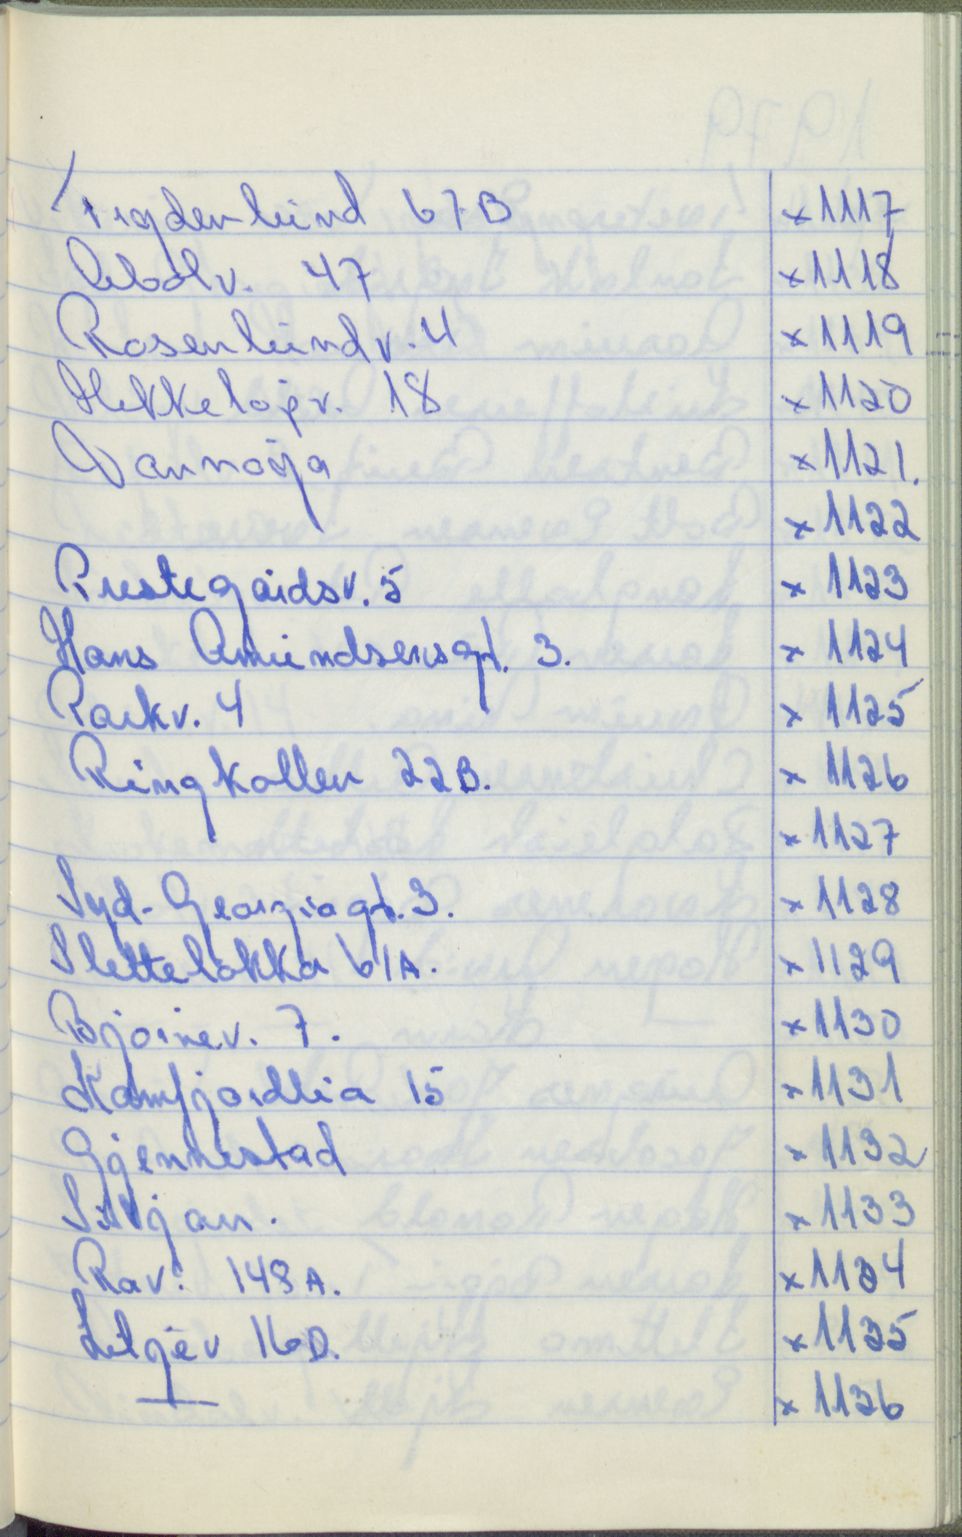 67B x1117
47 x1118
Rosenlundv. 4 x1119
18 x1120
x1121.
x1122
Prestegårdsv. 5 x1123
Hans Amundsensgt. 3. x1124
Parkv. 4 x1125
Ringkollen 22B. x1126
x1127
Syd-Georgiagt. 3. x1128
Sletteløkka 61A. x1129
Bjørnev. 7. x1130
Kamfjordlia 15 x1131
Gjennestad x1132
Siljan. x1133
Rav. 148A. x1134
16D. x1135
x1136